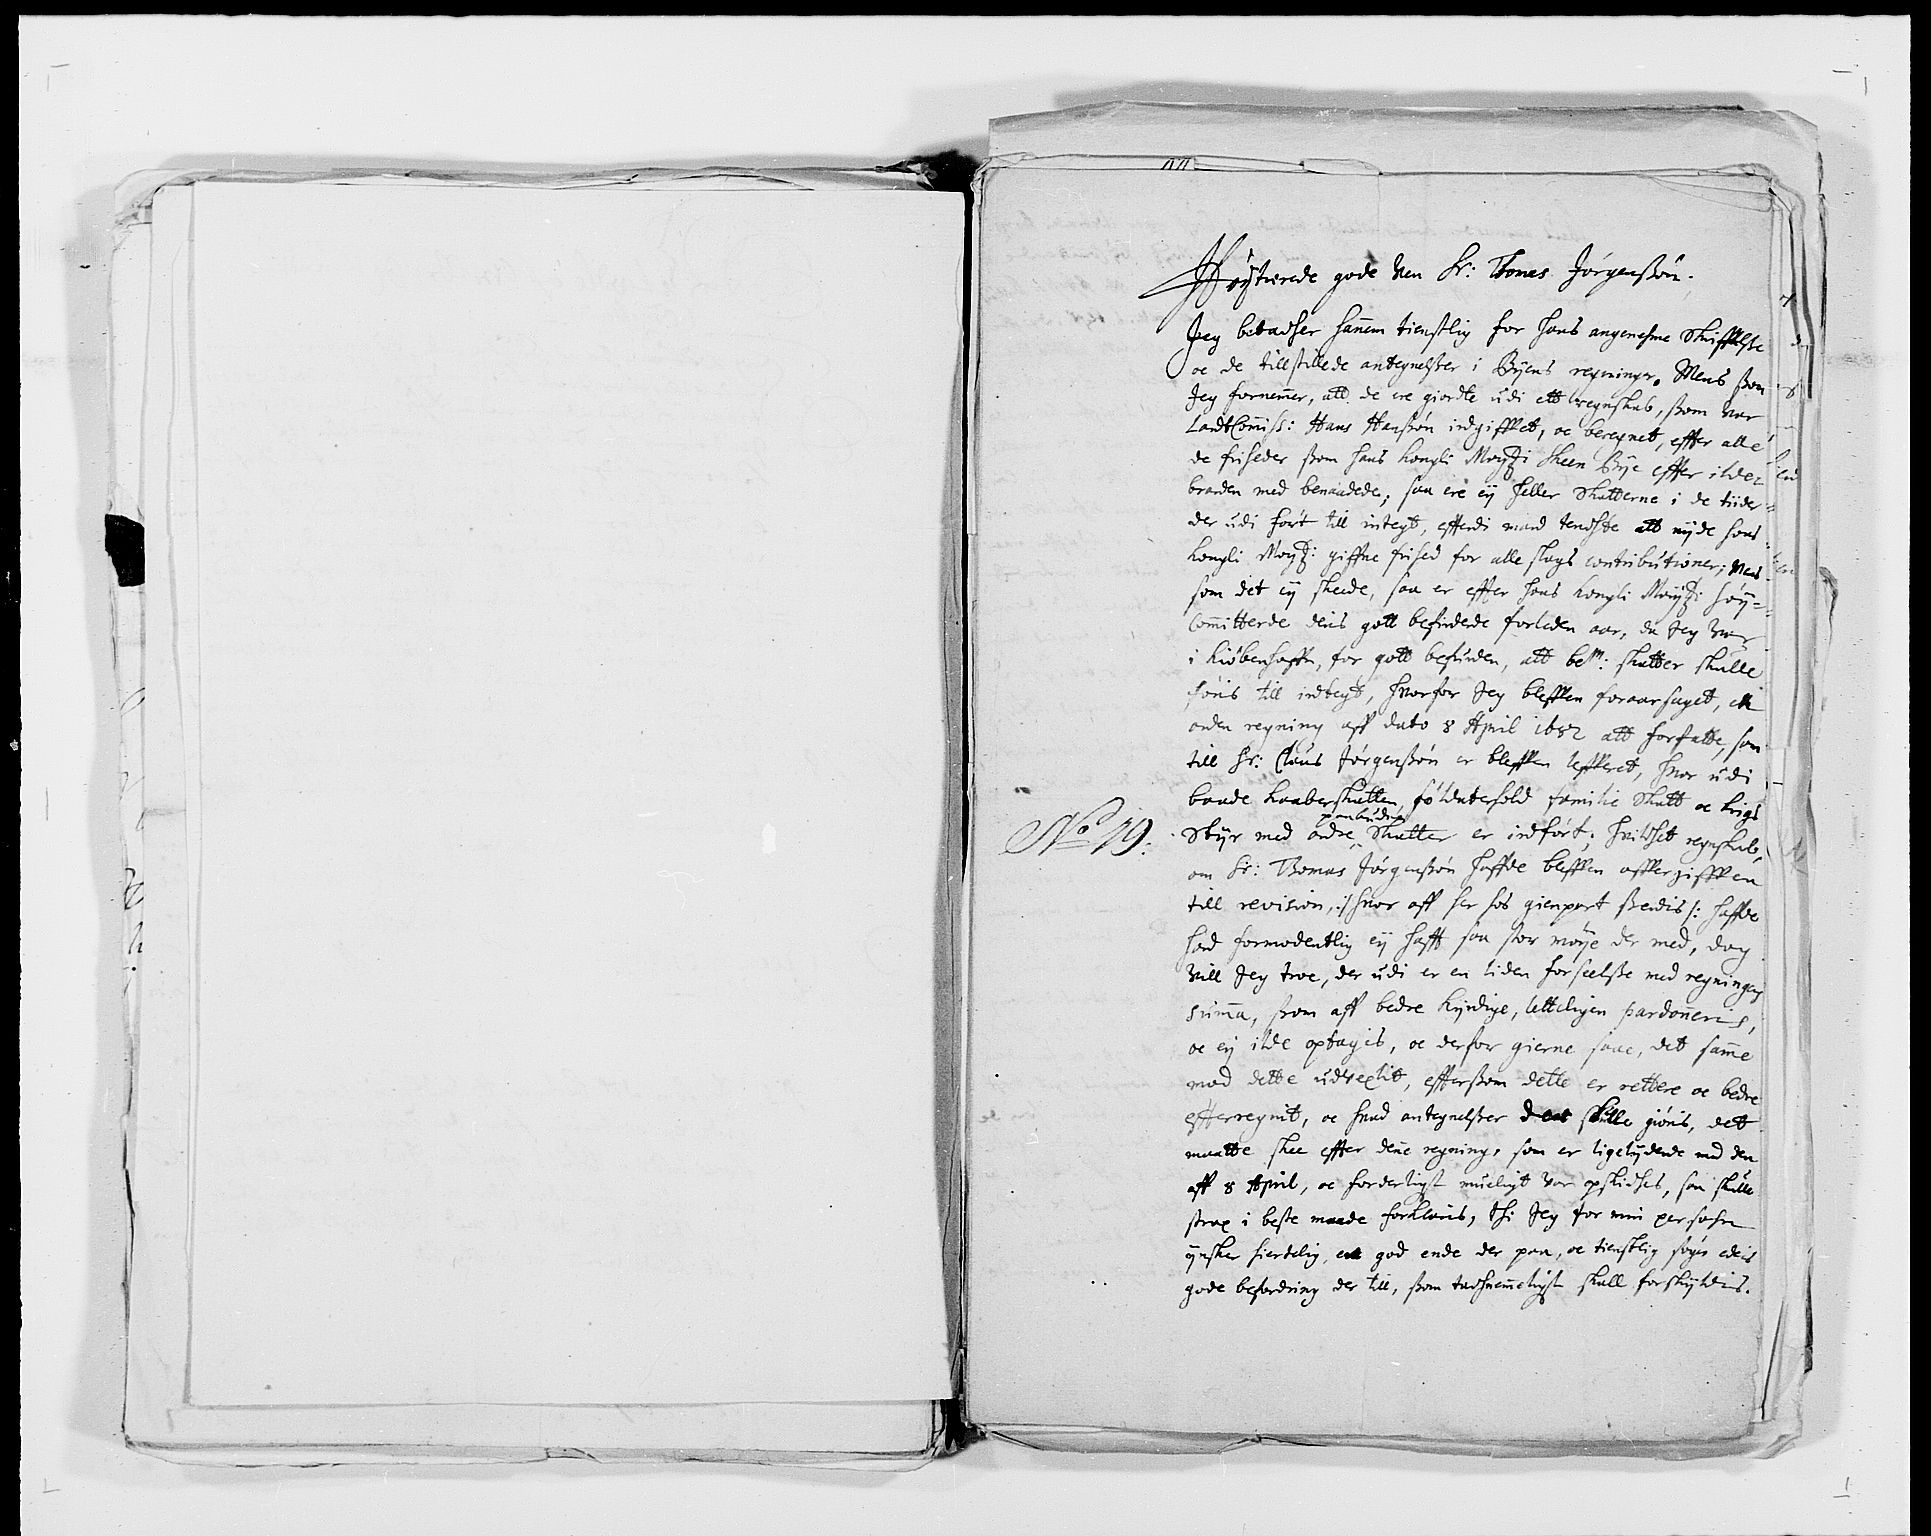 Høÿtærede gode Ven Sr: Thomas Jørgenßøn.
Jeg betacher hannem tienstlig for hans angenehme Skriffvelße
oc de tillstillede antegnelßer i Byens regninger. Mens ßom
Jeg fornemmer, att de ere giordte udi ett regnskab, ßom Var
LandtCommiss: Hans Hanßøn indgiffvet, oc beregnet, effter alle
de friheder ßom hans Kongli Mayt:i Skeen Bye effter ilde-
branden med benaadede, saa ere eÿ heller Skatterne i de tiider
der udi ført till indtegt, efferdi mand tenchte att nÿde hans
Kongli Mayt: giffne frihed for alle slags contributioner; Mens
som det eÿ skeede, saa er effter hans Kongli Mayt:i høÿ-
Committerde deris gott befindende forleden aar, da Jeg Var
i Kiøbenhaffn, for gott befunden, att bem: skatter skulle
føris till indtegt, hvorfor Jeg bleffven foraarsaget, en
anden regning aff dato 8 April 1682 att forfatte, som
till Sr: Claus Jørgenßøn er bleffven leffveret, hvor udi
baade Kaaberskatten, føl Underhold familie Skatt oc krigs
No 19:
Styr med andre paabudne Skatter er indført; hvilchet regnskab,
om Sr: Thomas Jørgenßøn haffde bleffven offvergiffven
till revision, :/ hvor aff her hos gienpart ßendis /: haffde
hand formodentlig eÿ hafft saa stor møÿe der med, dog
Vill Jeg troe, der udi er en liden forseelße med regningens
summa, ßom aff bedre kyndige, letteligen pardonneris,
oc eÿ ilde optagis, oc derfor gierne saae, det samme
mod dette udvexlit, effterßom dette er rettere oc bedre
effterregnit, oc hvad antegnelßer der skulle giøris, det
maatte skee effter denne regning, som er ligelydende med den
aff 8 April, oc forderligst mueligt Vor opskichet, saa skulle
strax i beste maade forklaris, thi Jeg for min persohn
ÿnsker hiertelig, en god ende der paa, oc tienstlig søger eders
gode befordring der till, ßom tachnemmeligst skall forskÿldis.